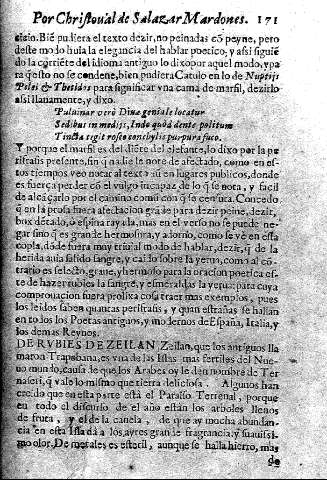 Por Christoual de Salazar Mardones. 171
cicio. Biē pudiera el texto dezir, no peinadas cō peyne, pero
deste modo huia la elegancia del hablar poetico, y assi siguiē
do la corriēte del idioma antiguo lo dixo por aquel modo, y pa
ra q̄ esto no se condene, bien pudiera Catulo en lo de Nuptijs
Pelei & Thetidos para significar vna cama de marfil, dezirlo
assi llanamente, y dixo.
Puluinar verò Diuæ geniale locatur
Sedibus in medijs, Indo quòd dente politum
Tincta tegit roseo conchylis purpura fuco.
Y porque el marfil es del diēte del elefante, lo dixo por la pe
rifrasis presente, sin q̄ nadie le note de afectado, como en es-
tos tiempos veo notar al texto aū en lugares publicos, donde
es fuerça perder cō el vulgo incapaz de lo q̄ se nota, y facil
de alcāçarlo por el camino comū con q̄ se censura. Concedo
q̄ en la prosa fuera afectacion grāde para dezir peine, dezir,
box dētado, ò espina rayada, mas en el verso no se puede ne-
gar sino q̄ es grande hermosura, y adorno, como se vè en esta
copla, dōde fuera muy triuial modo de hablar, dezir, q̄ de la
herida auia salido sangre, y caido sobre la yerua, como al cō-
trario es selecto, graue, y hermoso para la oracion poetica es-
te de hazer rubies la sangre, y esmeraldas la yerua: para cuya
comprouacion fuera prolixa cosa traer mas exemplos, pues
los leidos saben quantas perifrasis, y quan estrañas se hallan
en todos los Poetas antiguos, y modernos de España, Italia, y
los demas Reynos.
DE RVBIES DE ZEILAN Zeilan, que los antiguos lla
maron Trapobana, es vna de las Islas mas fertiles del Nue-
uo mundo, causa de que los Arabes oy le den nombre de Ter
nasiri, q̄ vale lo mismo que tierra deliciosa. Algunos han
creido que en esta parte està el Paraiso Terrenal, porque
en todo el discurso de el año estàn los arboles llenos
de fruta, y el de la canela, de que ay mucha abundan-
cia en esta Isla dà a los ayres gran de fragrancia, y suauissi-
mo olor. De metales es esteril, aunque se halla hierro, mas